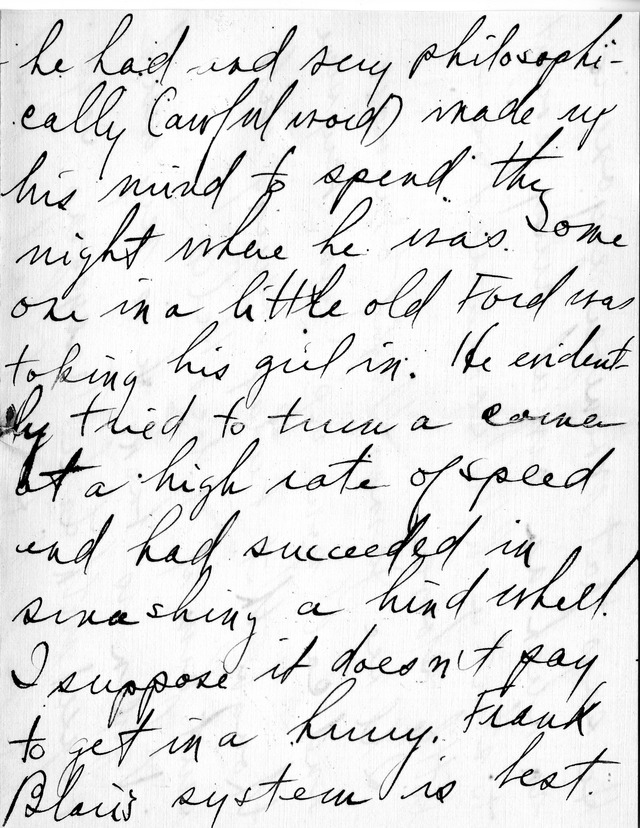 he had and very philosophi-
cally (awful word) made up
his mind to spend the
night where he was. Some
one in a little old Ford was
taking his girl in. He evident-
ly tried to turn a corner
at a high rate of speed
and had succeeded in
smashing a hind wheel.
I suppose it doesn't pay
to get in a hurry. Frank
Blair's system is best.